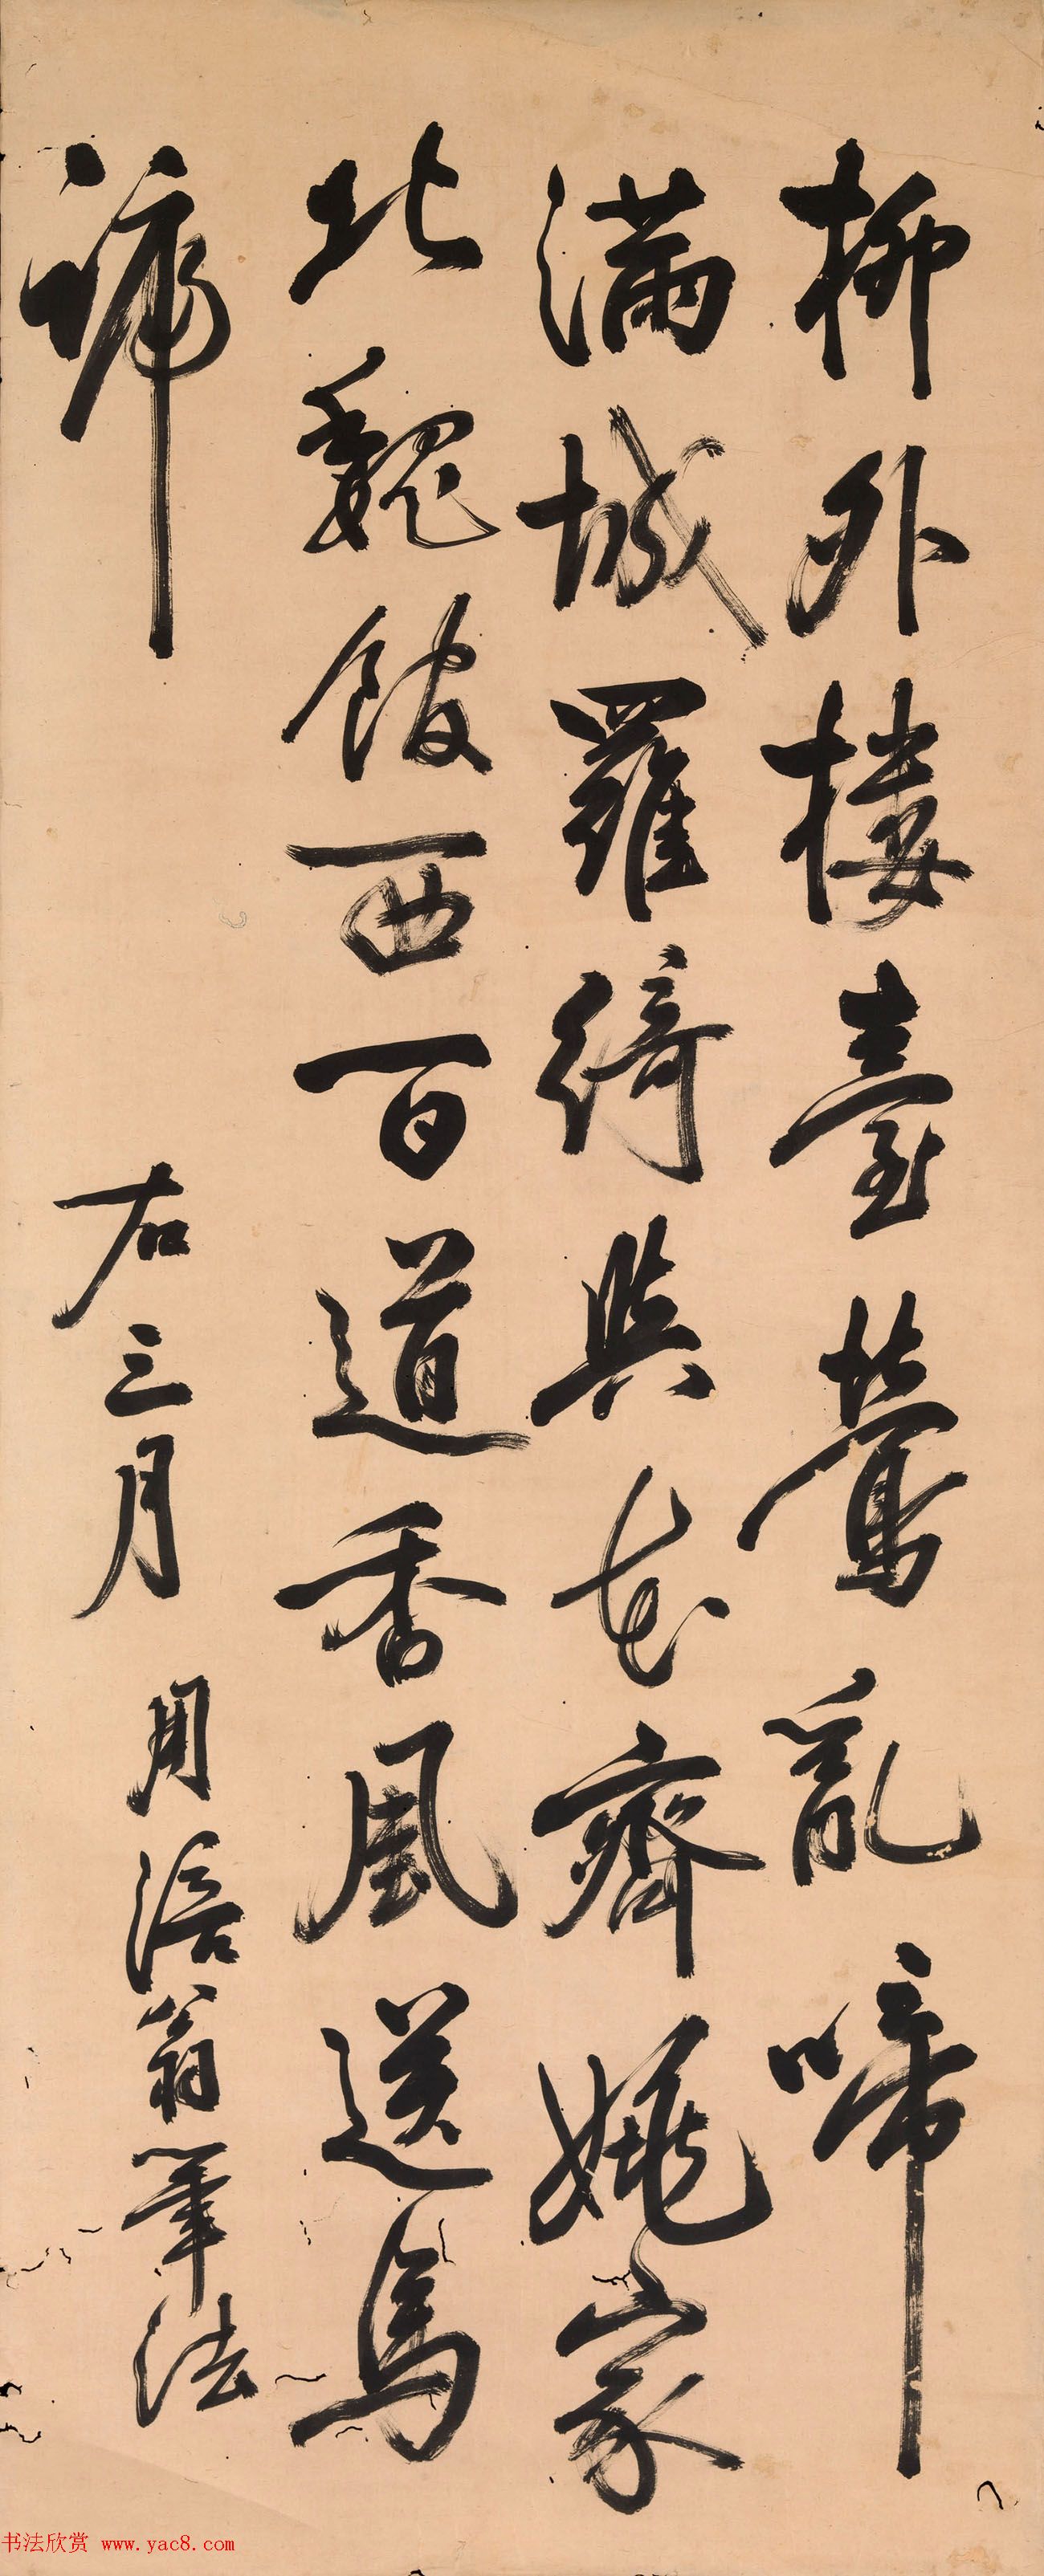 柳外樓臺鶯亂啼
滿城羅綺與花齊姚家
北魏館西百道香風送馬
蹏
右三月
用涪翁筆法
书法欣赏 www.yac8.com